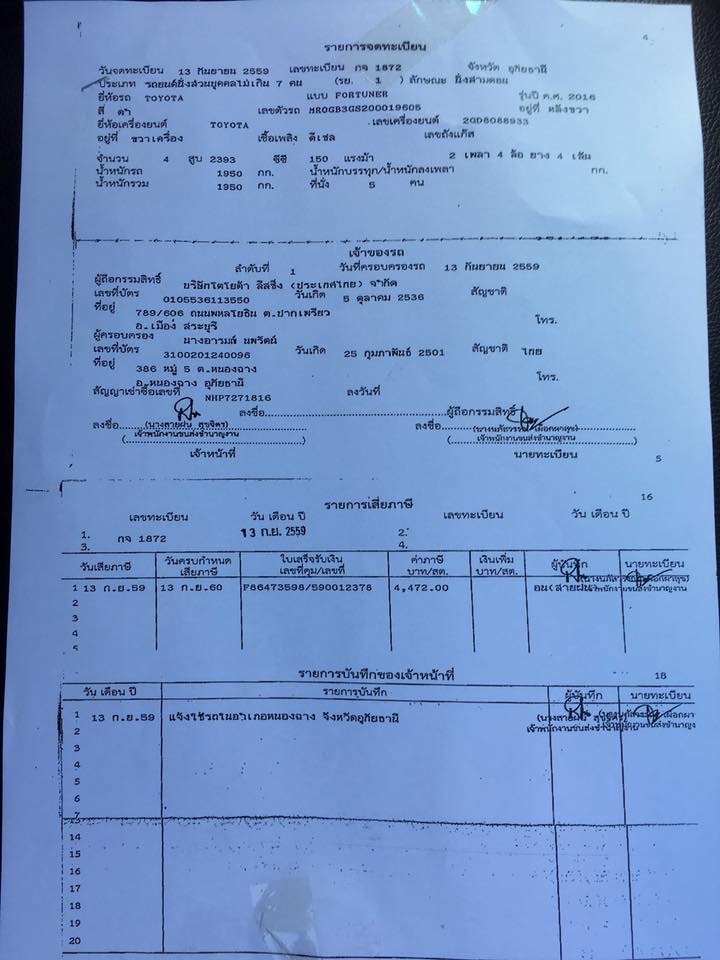 4
รายการจดทะเบียน
วันจดทะเบียน 13 กันยายน 2559 เลขทะเบียน กจ 1872 จังหวัด อุทัยธานี
ประเภท รถยนต์นั่งส่วนบุคคลไม่เกิน 7 คน (รย. 1 ) ลักษณะ นั่งสามตอน
ยี่ห้อรถ TOYOTA แบบ FORTUNER รุ่นปี ค.ศ. 2016
สี ดำ เลขตัวรถ MR0GB3GS200019605 อยู่ที่ หลังขวา
ยี่ห้อเครื่องยนต์ TOYOTA เลขเครื่องยนต์ 2GD8088933
อยู่ที่ ขวาเครื่อง เชื้อเพลิง ดีเซล เลขถังแก๊ส
จำนวน 4 สูบ 2393 ซีซี 150 แรงม้า 2 เพลา 4 ล้อ ยาง 4 เส้น
น้ำหนักรถ 1950 กก. น้ำหนักบรรทุก/น้ำหนักลงเพลา กก.
น้ำหนักรวม 1950 กก. ที่นั่ง 5 คน
เจ้าของรถ
ลำดับที่ 1 วันที่ครอบครองรถ 13 กันยายน 2559
ผู้ถือกรรมสิทธิ์ บริษัทโตโยต้า ลีสซิ่ง (ประเทศไทย) จำกัด
เลขที่บัตร 0105536113550 วันเกิด 5 ตุลาคม 2536 สัญชาติ
ที่อยู่ 789/606 ถนนพหลโยธิน ต.ปากเพรียว
อ.เมือง สระบุรี โทร.
ผู้ครอบครอง นางอารมณ์ นพวัตย์
เลขที่บัตร 3100201240096 วันเกิด 25 กุมภาพันธ์ 2501 สัญชาติ ไทย
ที่อยู่ 386 หมู่ 5 ต.หนองฉาง
อ.หนองฉาง อุทัยธานี โทร.
สัญญาเช่าซื้อเลขที่ NHP7271816 ลงวันที่
ลงชื่อ ผู้ถือกรรมสิทธิ์
ลงชื่อ (นางสายฝน สุขจิตร) ลงชื่อ
เจ้าพนักงานขนส่งชำนาญงาน เจ้าพนักงานขนส่งชำนาญงาน
เจ้าหน้าที่ นายทะเบียน
5
16
รายการเสียภาษี
เลขทะเบียน วัน เดือน ปี เลขทะเบียน วัน เดือน ปี
1. กจ 1872 13 ก.ย. 2559 2.
3. 4.
วันเสียภาษี วันครบกำหนดเสียภาษี ใบเสร็จรับเงิน เลขที่คุม/เลขที่ ค่าภาษี บาท/สต. เงินเพิ่ม บาท/สต. ผู้บันทึก นายทะเบียน
1 13 ก.ย.59 13 ก.ย.60 F86473598/590012378 4,472.00
2
3
4
5
รายการบันทึกของเจ้าหน้าที่ 18
วัน เดือน ปี รายการบันทึก ผู้บันทึก นายทะเบียน
1 13 ก.ย.59 แจ้งใช้รถในอำเภอหนองฉาง จังหวัดอุทัยธานี (นางสายฝน สุขจิตร)
2
3
4
5
6
7
13
14
15
16
17
18
19
20